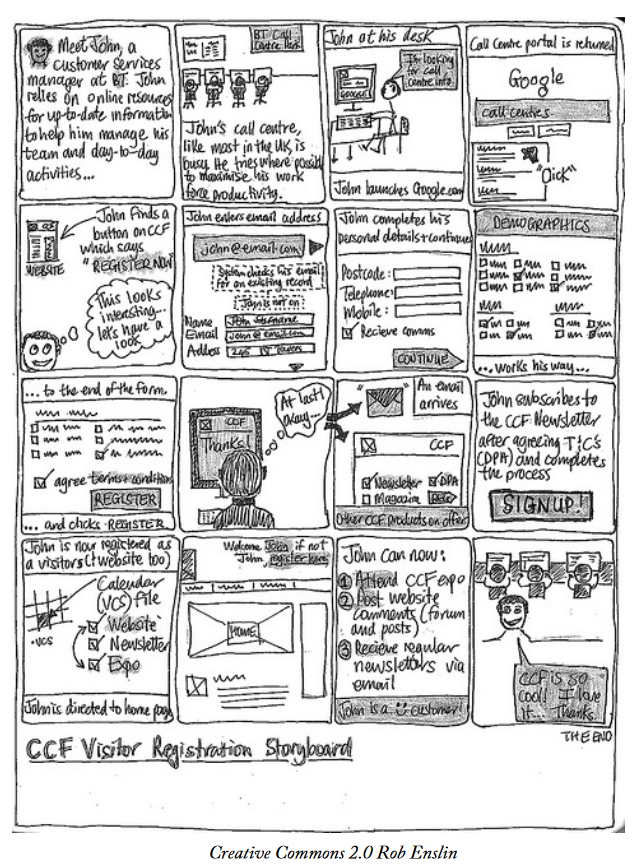 Meet John, a
customer services
manager at BT. John
relies on online resources
for up-to-date information
to help him manage his
team and day-to-day
activities...
BT Call
Centre Park
John's call centre,
like most in the UK, is
busy. He tries where possible
to maximise his work
force productivity.
John at his desk
I'm looking
for call
centre info
GOOGLE
John launches Google.com
Call Centre portal is returned
Google
call centres
"Click"
John finds a
button on CCF
which says
"REGISTER NOW"
WEBSITE
This looks
interesting...
let's have a
look
John enters email address
john@email.com
System checks his email
for an existing record
John is not on
Name
Email John@email.com
Address
John completes his
personal details + continues
Postcode:
Telephone:
Mobile:
Recieve comms
CONTINUE
DEMOGRAPHICS
...works his way...
...to the end of the form
agree terms + conditions
REGISTER
...and clicks REGISTER
CCF
Thanks!
At last!
okay...
An email
arrives
CCF
Newsletter DPA
Magazine
Other CCF products on offer
John subscribes to
the CCF Newsletter
after agreeing T+C's
(DPA) and completes
the process
SIGN UP!
John is now registered as
a visitors (+ website too)
Calendar
(VCS) file
.VCS
Website
Newsletter
Expo
John is directed to home page
Welcome John if not
John, register here
HOME
John can now:
1 Attend CCF expo
2 Post website
comments (forum
and posts)
3 Recieve regular
newsletters via
email
John is a customer!
CCF is so
cool! I love
it... Thanks
THE END
CCF Visitor Registration Storyboard
Creative Commons 2.0 Rob Enslin